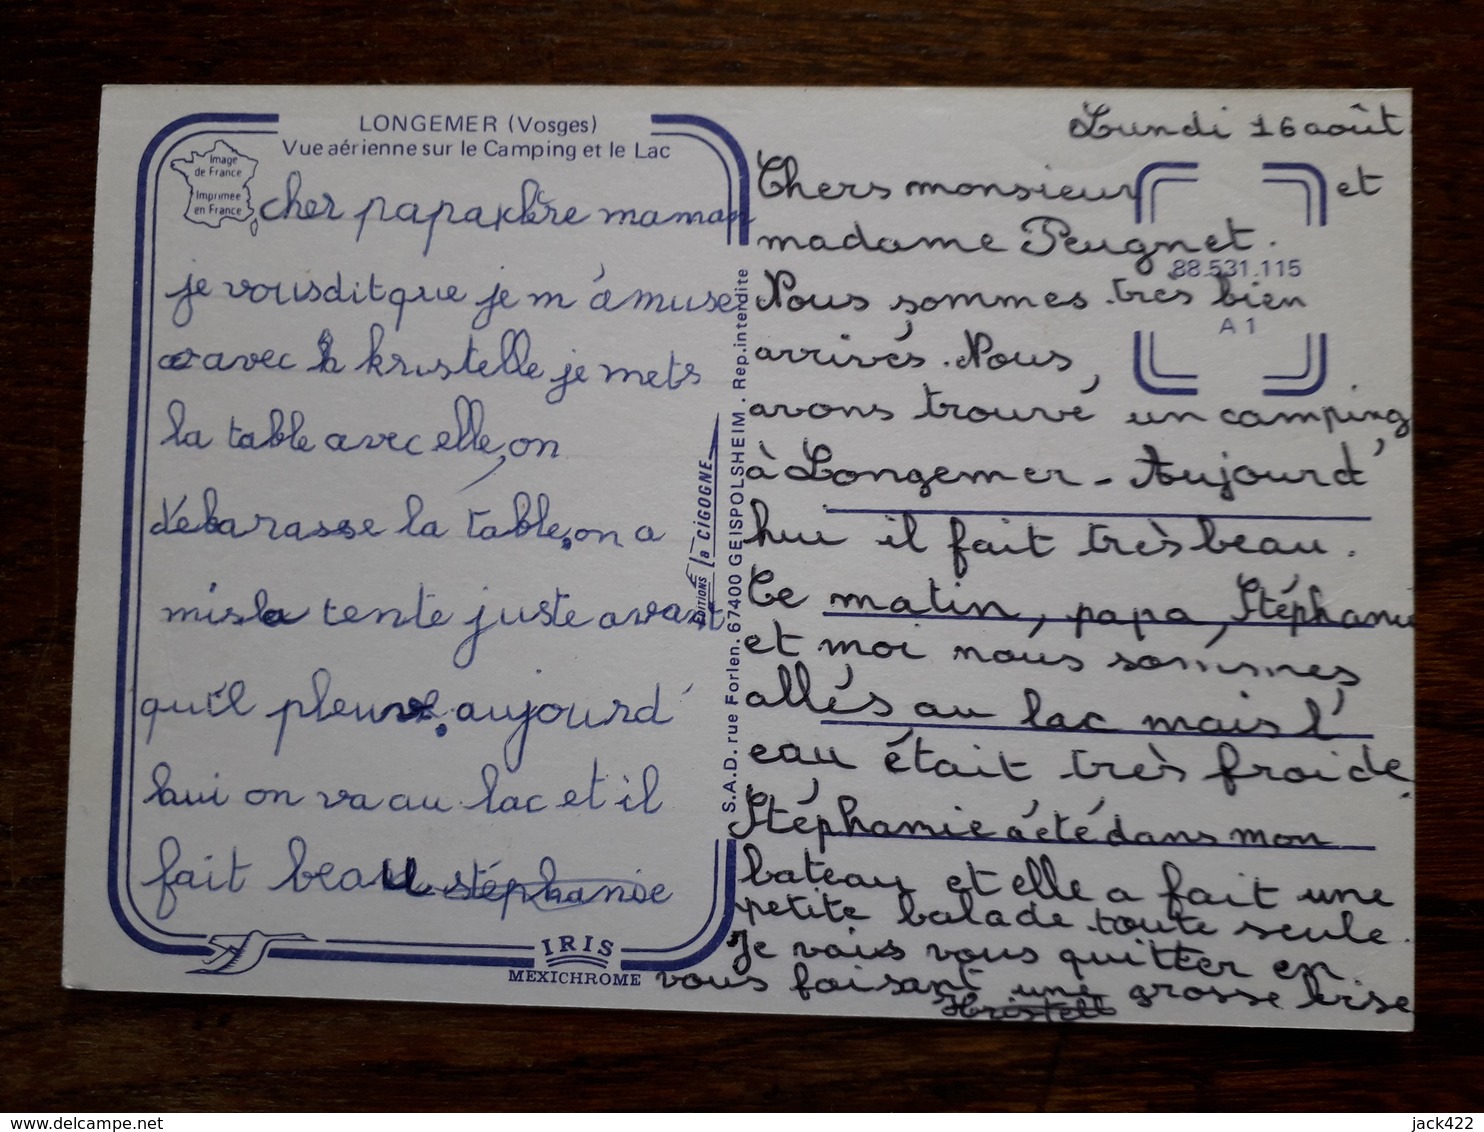 LONGEMER (Vosges)
Vue aérienne sur le Camping et le Lac
Image
de France
Imprimée
en France
cher papa chère maman
je vous dit que je m'amuse
avec kristelle je mets
la table avec elle, on
débarasse la table, on a
mis la tente juste avant
qu'il pleuve. aujourd'
hui on va au lac et il
fait beau stéphanie
IRIS
MEXICHROME
EDITIONS la CIGOGNE
S.A.D. rue Forlen. 67400 GEISPOLSHEIM. Rep. interdite
88.531.115
A 1
Lundi 16 août
Chers monsieur et
madame Peugnet.
Nous sommes très bien
arrivés. Nous
avons trouvé un camping
à Longemer - Aujourd'
hui il fait très beau.
Ce matin, papa, Stéphanie
et moi nous sommes
allés au lac mais l'
eau était très froide.
Stéphanie a été dans mon
bateau et elle a fait une
petite balade toute seule.
Je vais vous quitter en
vous faisant une grosse bise
Kristell
jack422